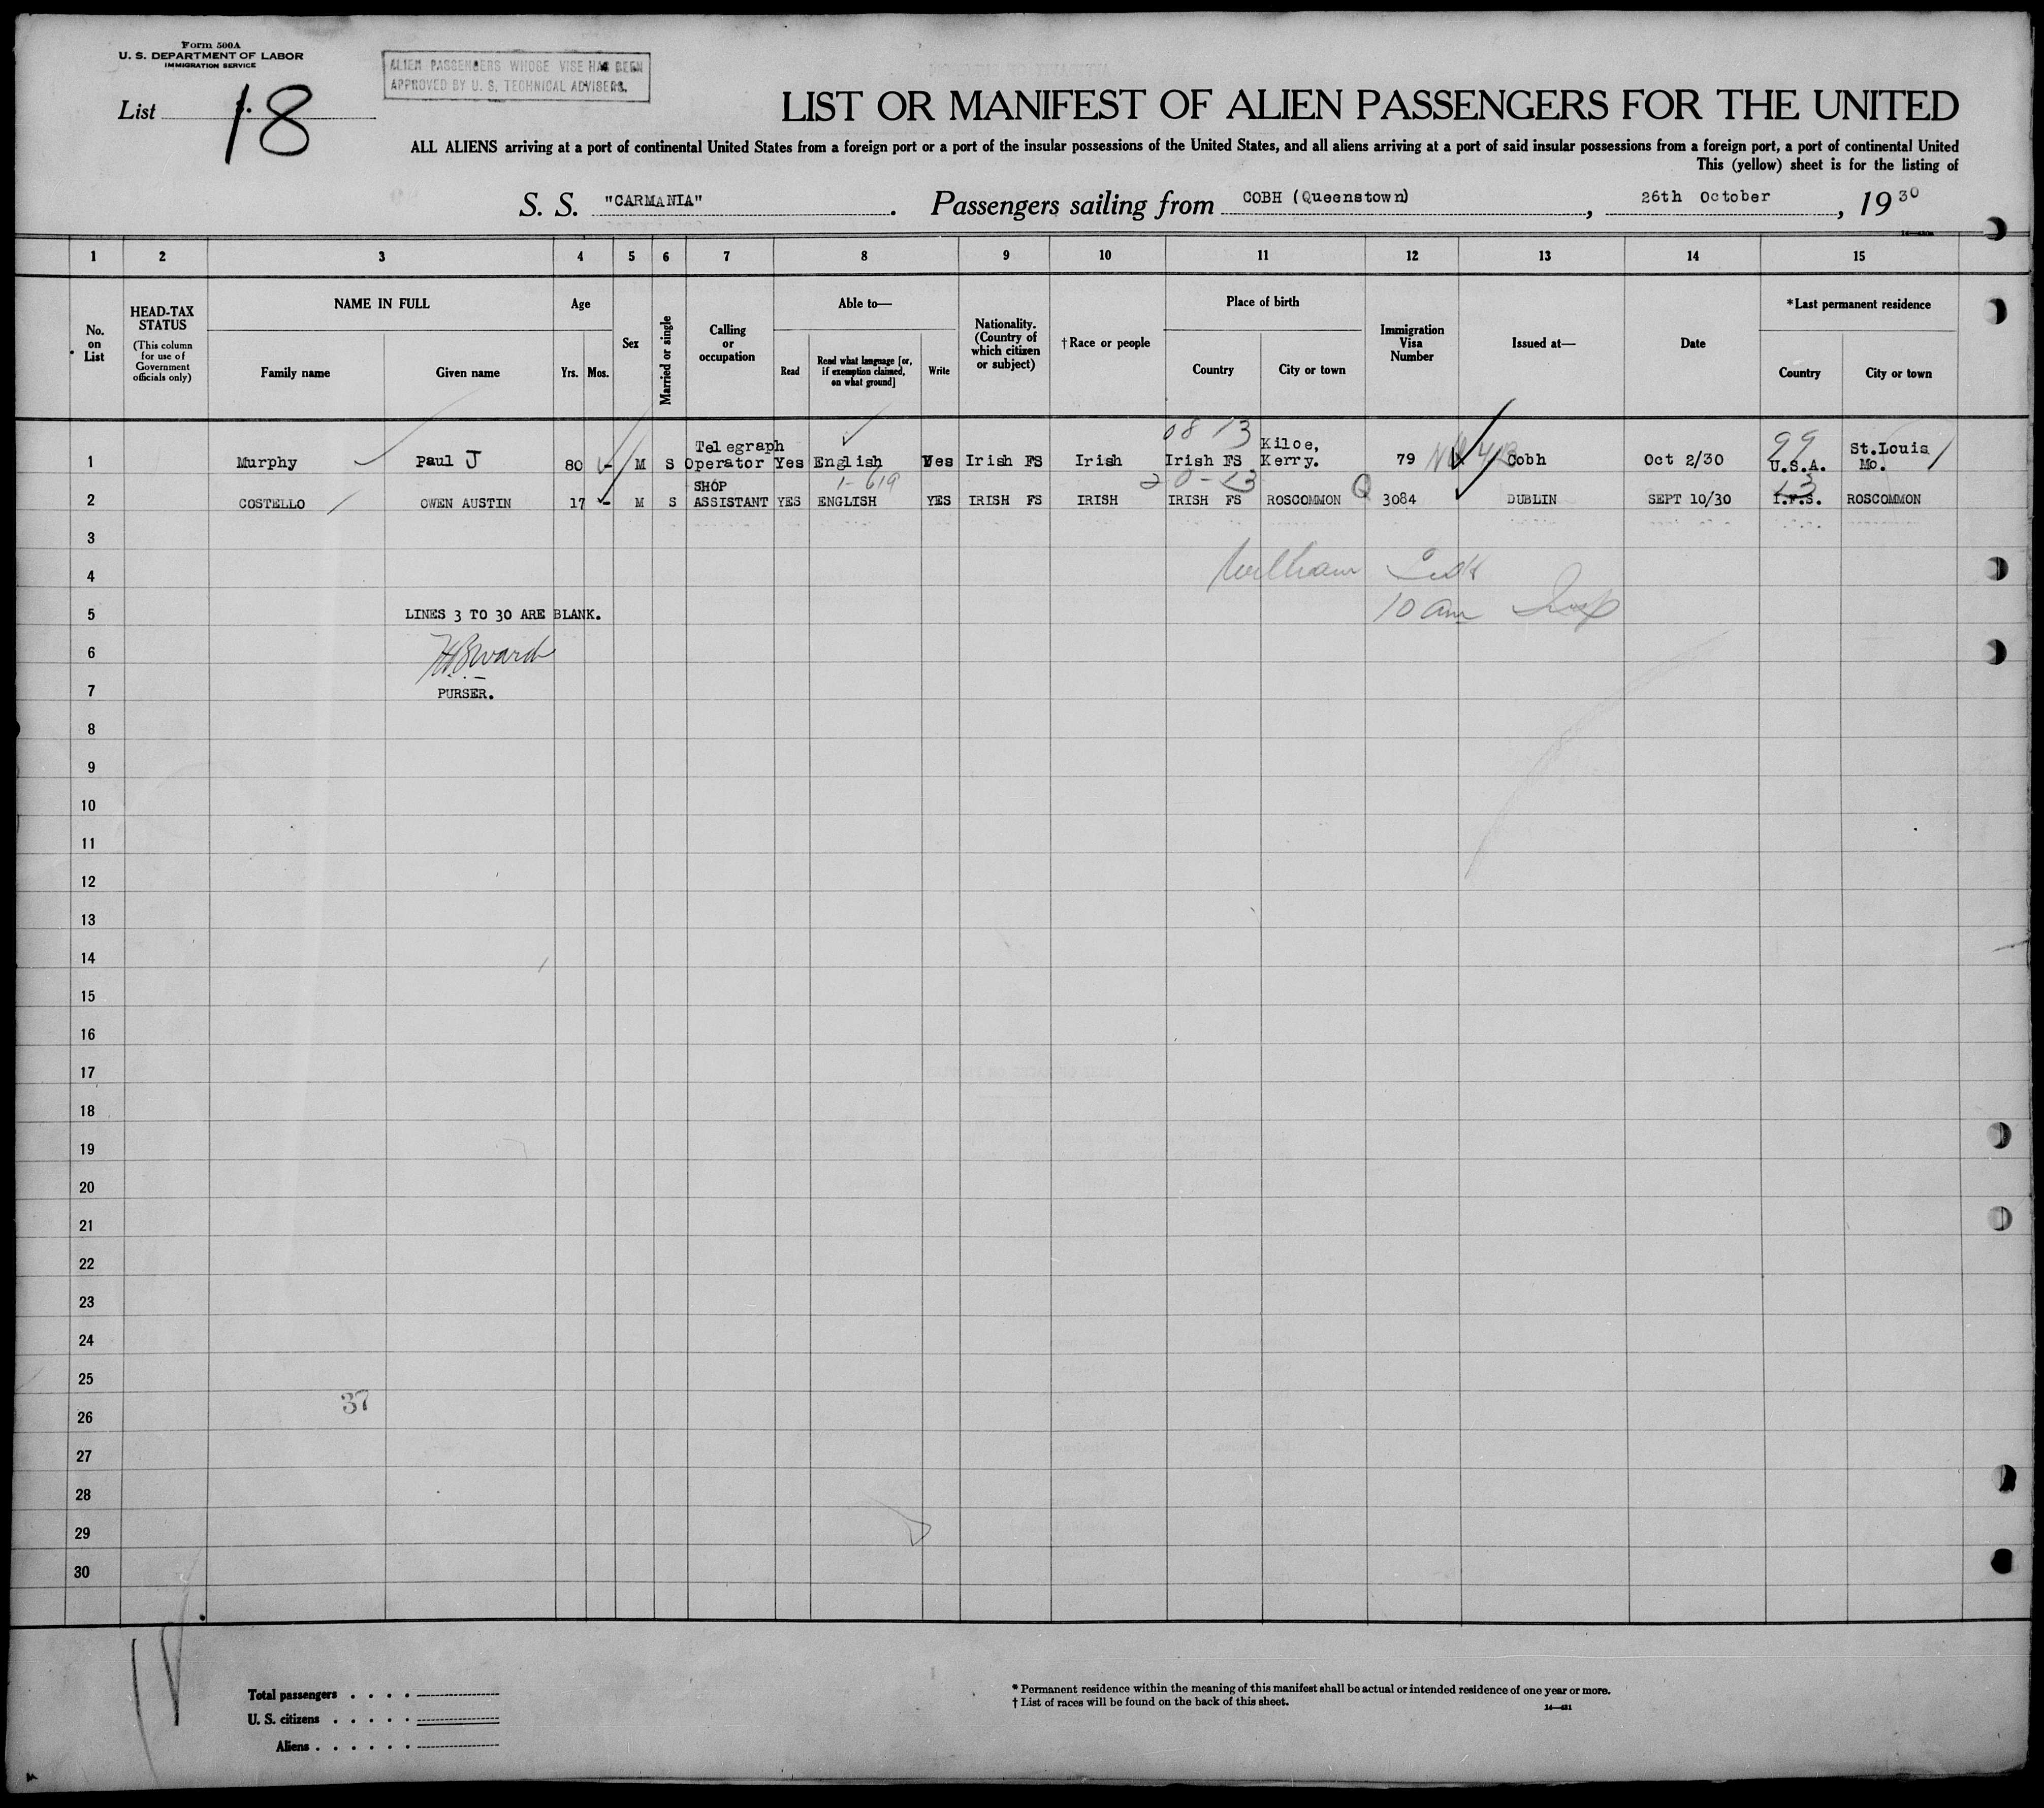 Form 500A
U. S. DEPARTMENT OF LABOR
IMMIGRATION SERVICE
ALIEN PASSENGERS WHOSE VISE HAS BEEN
APPROVED BY U. S. TECHNICAL ADVISERS.
List 18
LIST OR MANIFEST OF ALIEN PASSENGERS FOR THE UNITED
ALL ALIENS arriving at a port of continental United States from a foreign port or a port of the insular possessions of the United States, and all aliens arriving at a port of said insular possessions from a foreign port, a port of continental United
This (yellow) sheet is for the listing of
S. S. "CARMANIA". Passengers sailing from COBH (Queenstown), 26th October, 1930
1 2 3 4 5 6 7 8 9 10 11 12 13 14 15
No. on List
HEAD-TAX STATUS
(This column for use of Government officials only)
NAME IN FULL
Family name
Given name
Age
Yrs. Mos.
Sex
Married or single
Calling or occupation
Able to—
Read
Read what language [or, if exemption claimed, on what ground]
Write
Nationality. (Country of which citizen or subject)
† Race or people
Place of birth
Country
City or town
Immigration Visa Number
Issued at—
Date
*Last permanent residence
Country
City or town
08 13
99
1 Murphy Paul J 80 - M S Telegraph Operator Yes English Yes Irish FS Irish Irish FS Kiloe, Kerry. 79 Cobh Oct 2/30 U.S.A. St.Louis Mo.
1-619
20-13
13
2 COSTELLO OWEN AUSTIN 17 - M S SHOP ASSISTANT YES ENGLISH YES IRISH FS IRISH IRISH FS ROSCOMMON Q 3084 DUBLIN SEPT 10/30 I.F.S. ROSCOMMON
3
4 William
5 LINES 3 TO 30 ARE BLANK. 10 am Insp
6
7 PURSER.
8
9
10
11
12
13
14
15
16
17
18
19
20
21
22
23
24
25
37
26
27
28
29
30
18
Total passengers
U. S. citizens
Aliens
* Permanent residence within the meaning of this manifest shall be actual or intended residence of one year or more.
† List of races will be found on the back of this sheet.
14—421